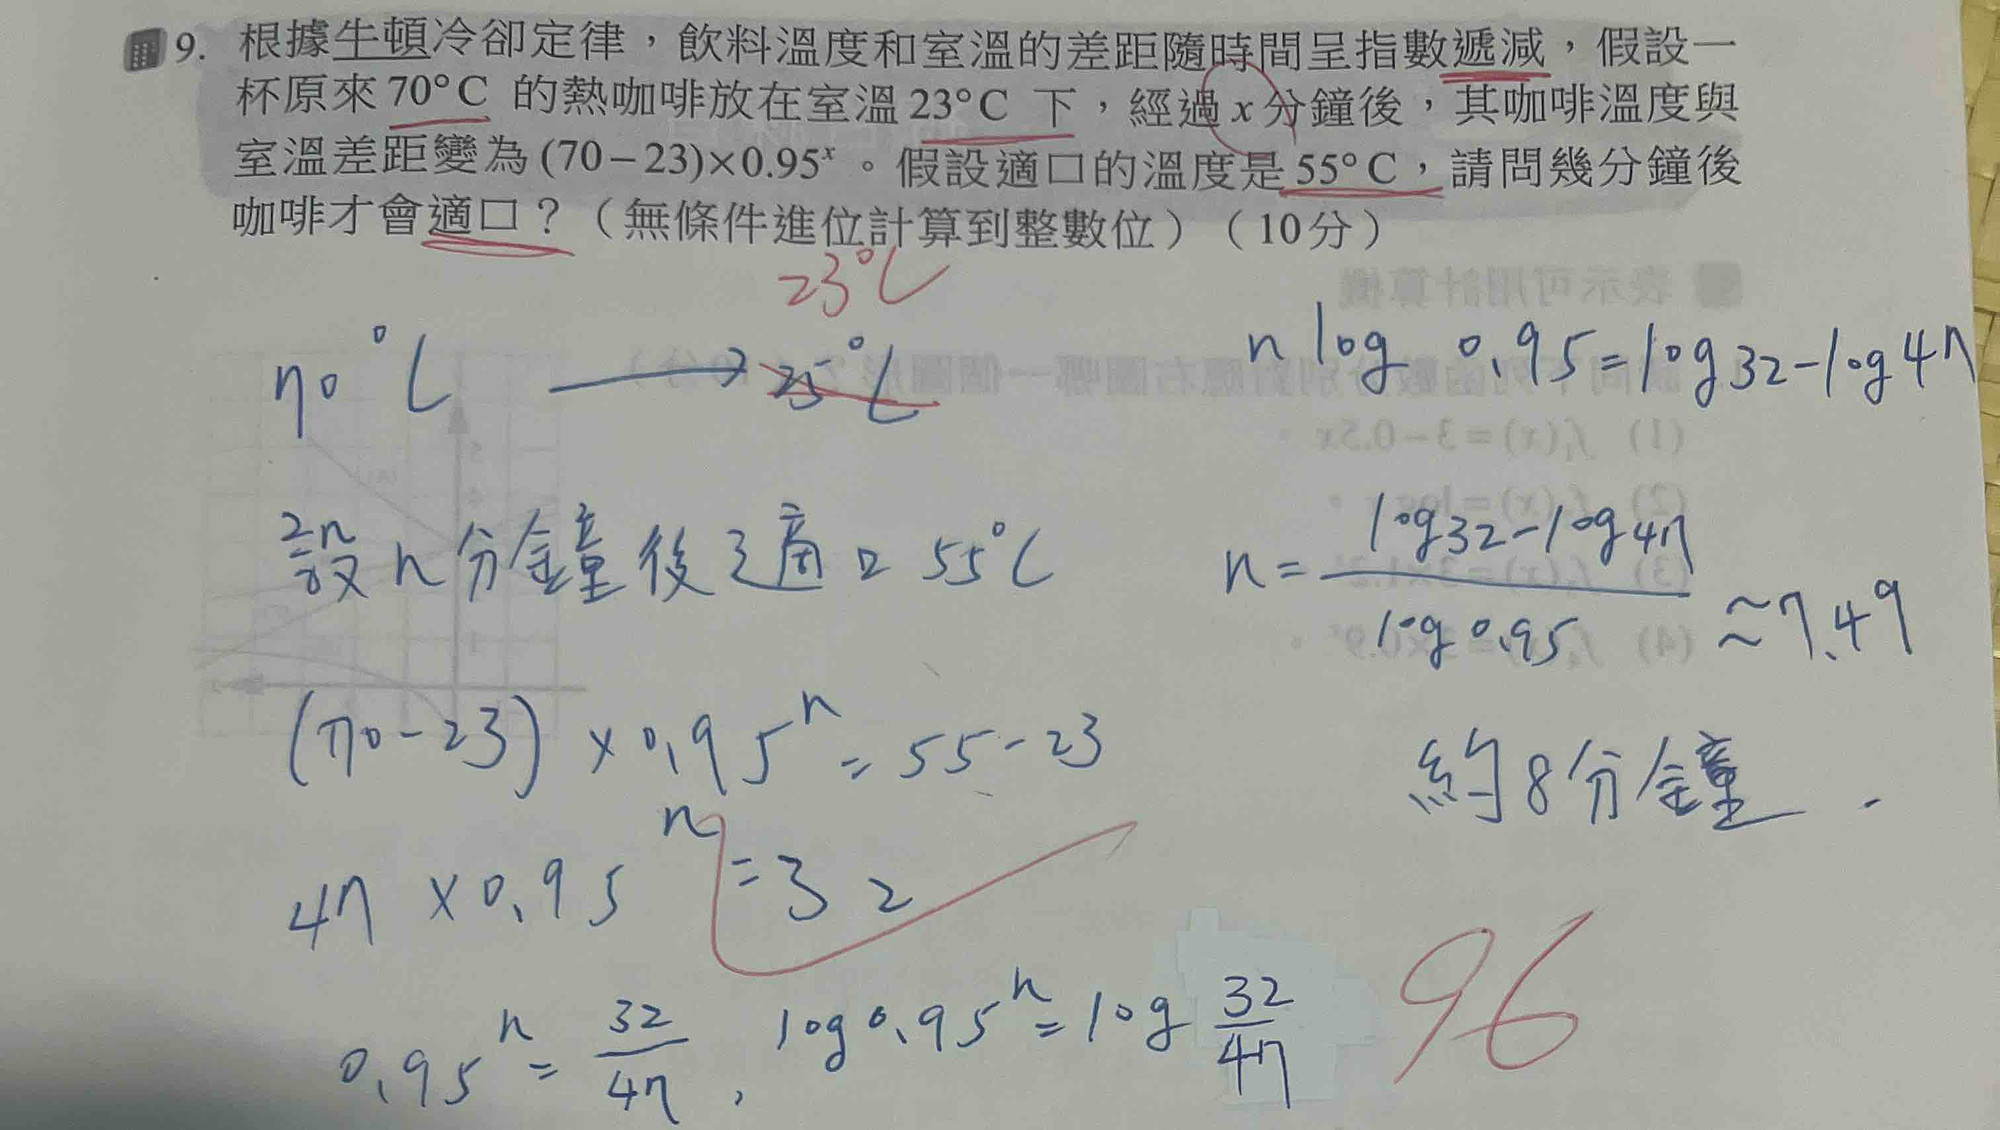 9. 根據牛頓冷卻定律，飲料溫度和室溫的差距隨時間呈指數遞減，假設一
杯原來70°C 的熱咖啡放在室溫23°C 下，經過x分鐘後，其咖啡溫度與
室溫差距變為(70−23)×0.95ˣ。假設適口的溫度是55°C，請問幾分鐘後
咖啡才會適口？（無條件進位計算到整數位）（10分）
23°C
70°C → 25°C
設n分鐘後適口55°C
(70-23)×0.95ⁿ=55-23
47×0.95ⁿ=32
0.95ⁿ=32/47, log0.95ⁿ=log 32/47
n log 0.95=log32-log47
n= (log32-log47)/log0.95 ≈7.49
約8分鐘.
96
表示可用計算機
(1) f₁(x)=3−0.5x